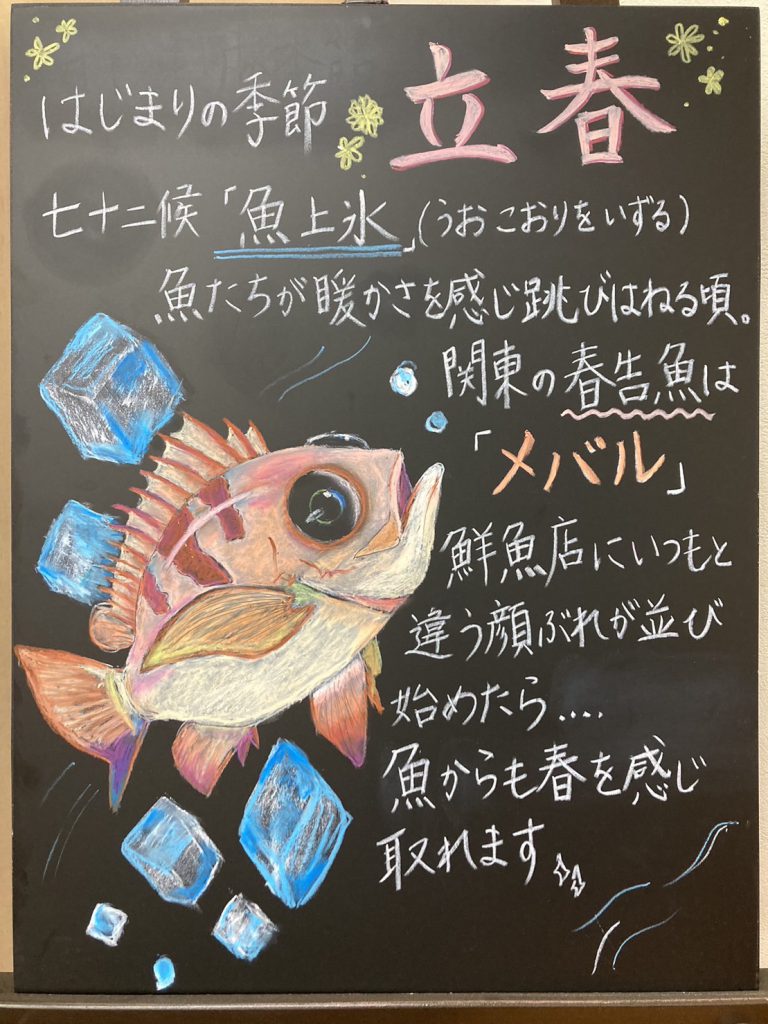 はじまりの季節 立春
七十二候「魚上氷」(うおこおりをいずる)
魚たちが暖かさを感じ跳びはねる頃。
関東の春告魚は
「メバル」
鮮魚店にいつもと
違う顔ぶれが並び
始めたら....
魚からも春を感じ
取れます